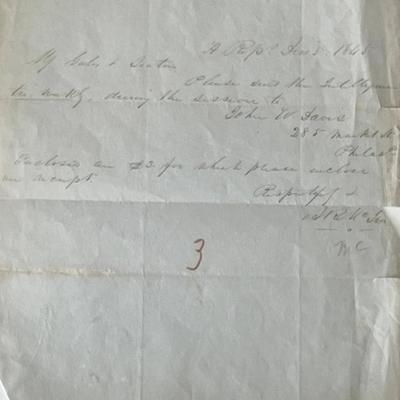 H Reps Jan 5 1848
Gales & Seaton
Please send the Intelligencer
tri weekly, during the session to
John W
285 Market St
Philada
Enclosed are $3 for which please enclose
me receipt
Respectfully
3
MC